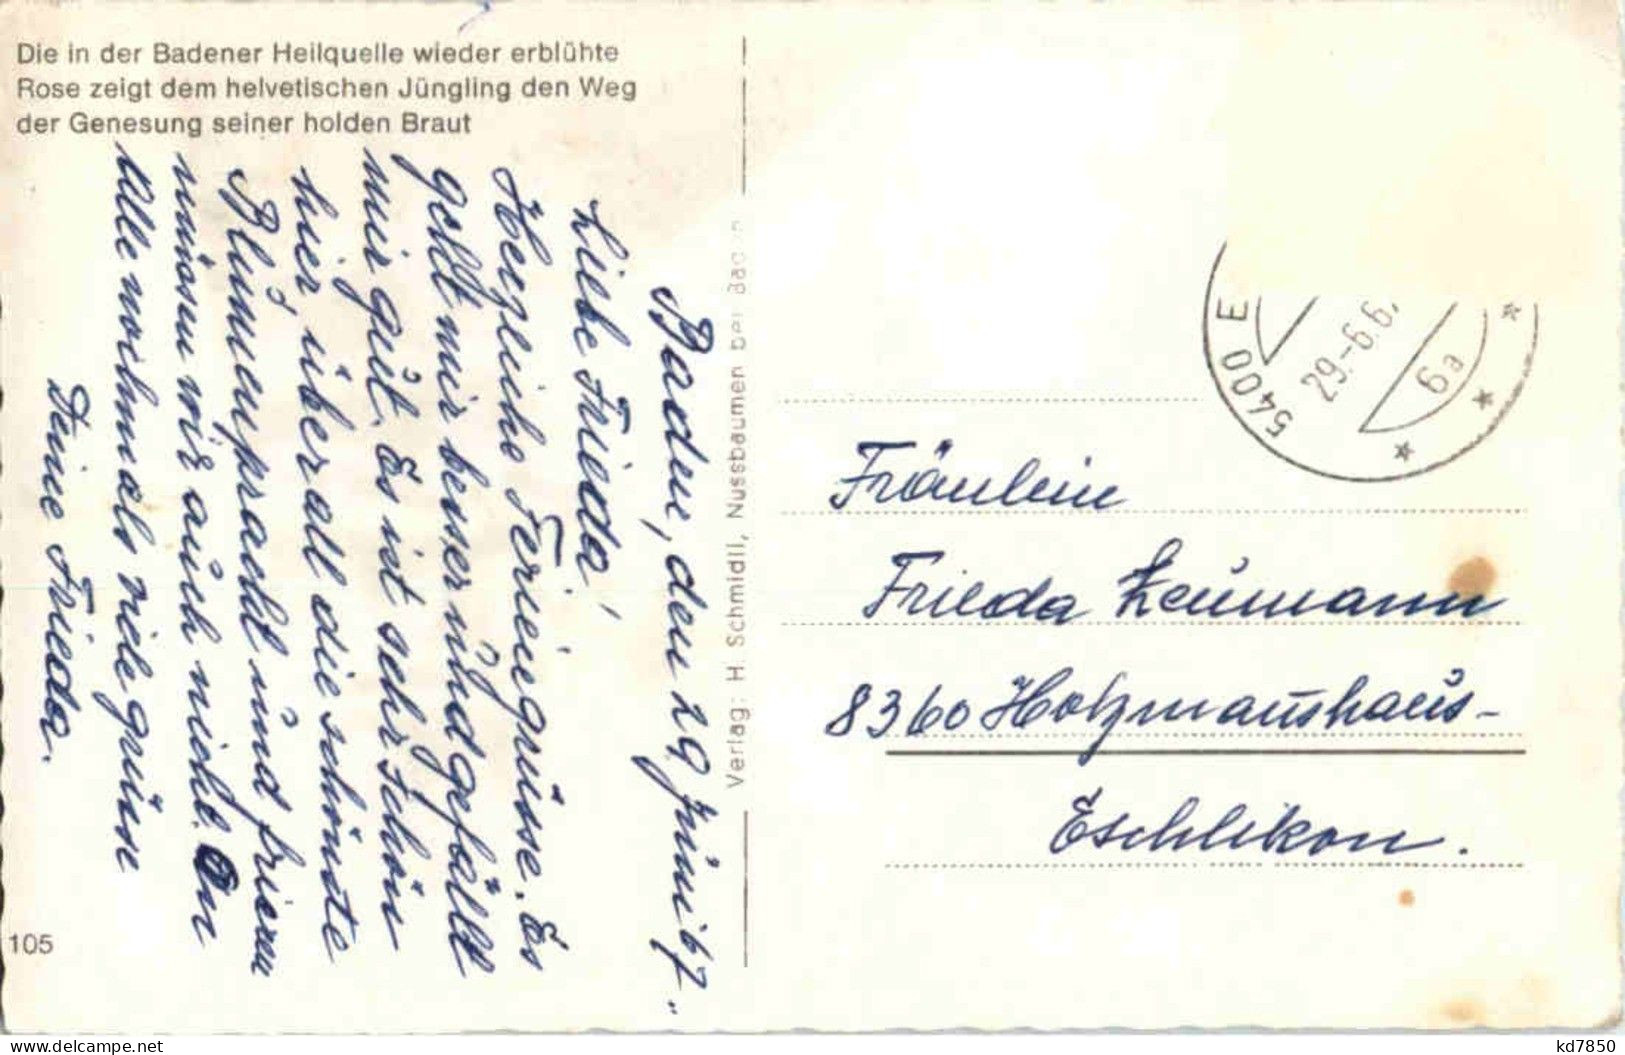 Die in der Badener Heilquelle wieder erblühte
Rose zeigt dem helvetischen Jüngling den Weg
der Genesung seiner holden Braut
Baden, den 29 Juni 67.
Liebe Frieda!
Herzliche Feriengrüsse. Es
geht mir besser und gefällt
mir gut. Es ist sehr schön
hier, überall die schönste
Blumenpracht und frieren
müssen wir auch nicht. An
Alle nochmals viele grüsse
Deine Frieda.
105
Verlag: H Schmidli, Nussbaumen bei Baden
5400
29.-6.6
6a
Fräulein
Frieda Leumann
8360 Holzmanshaus-
Eschlikon.
kd7850